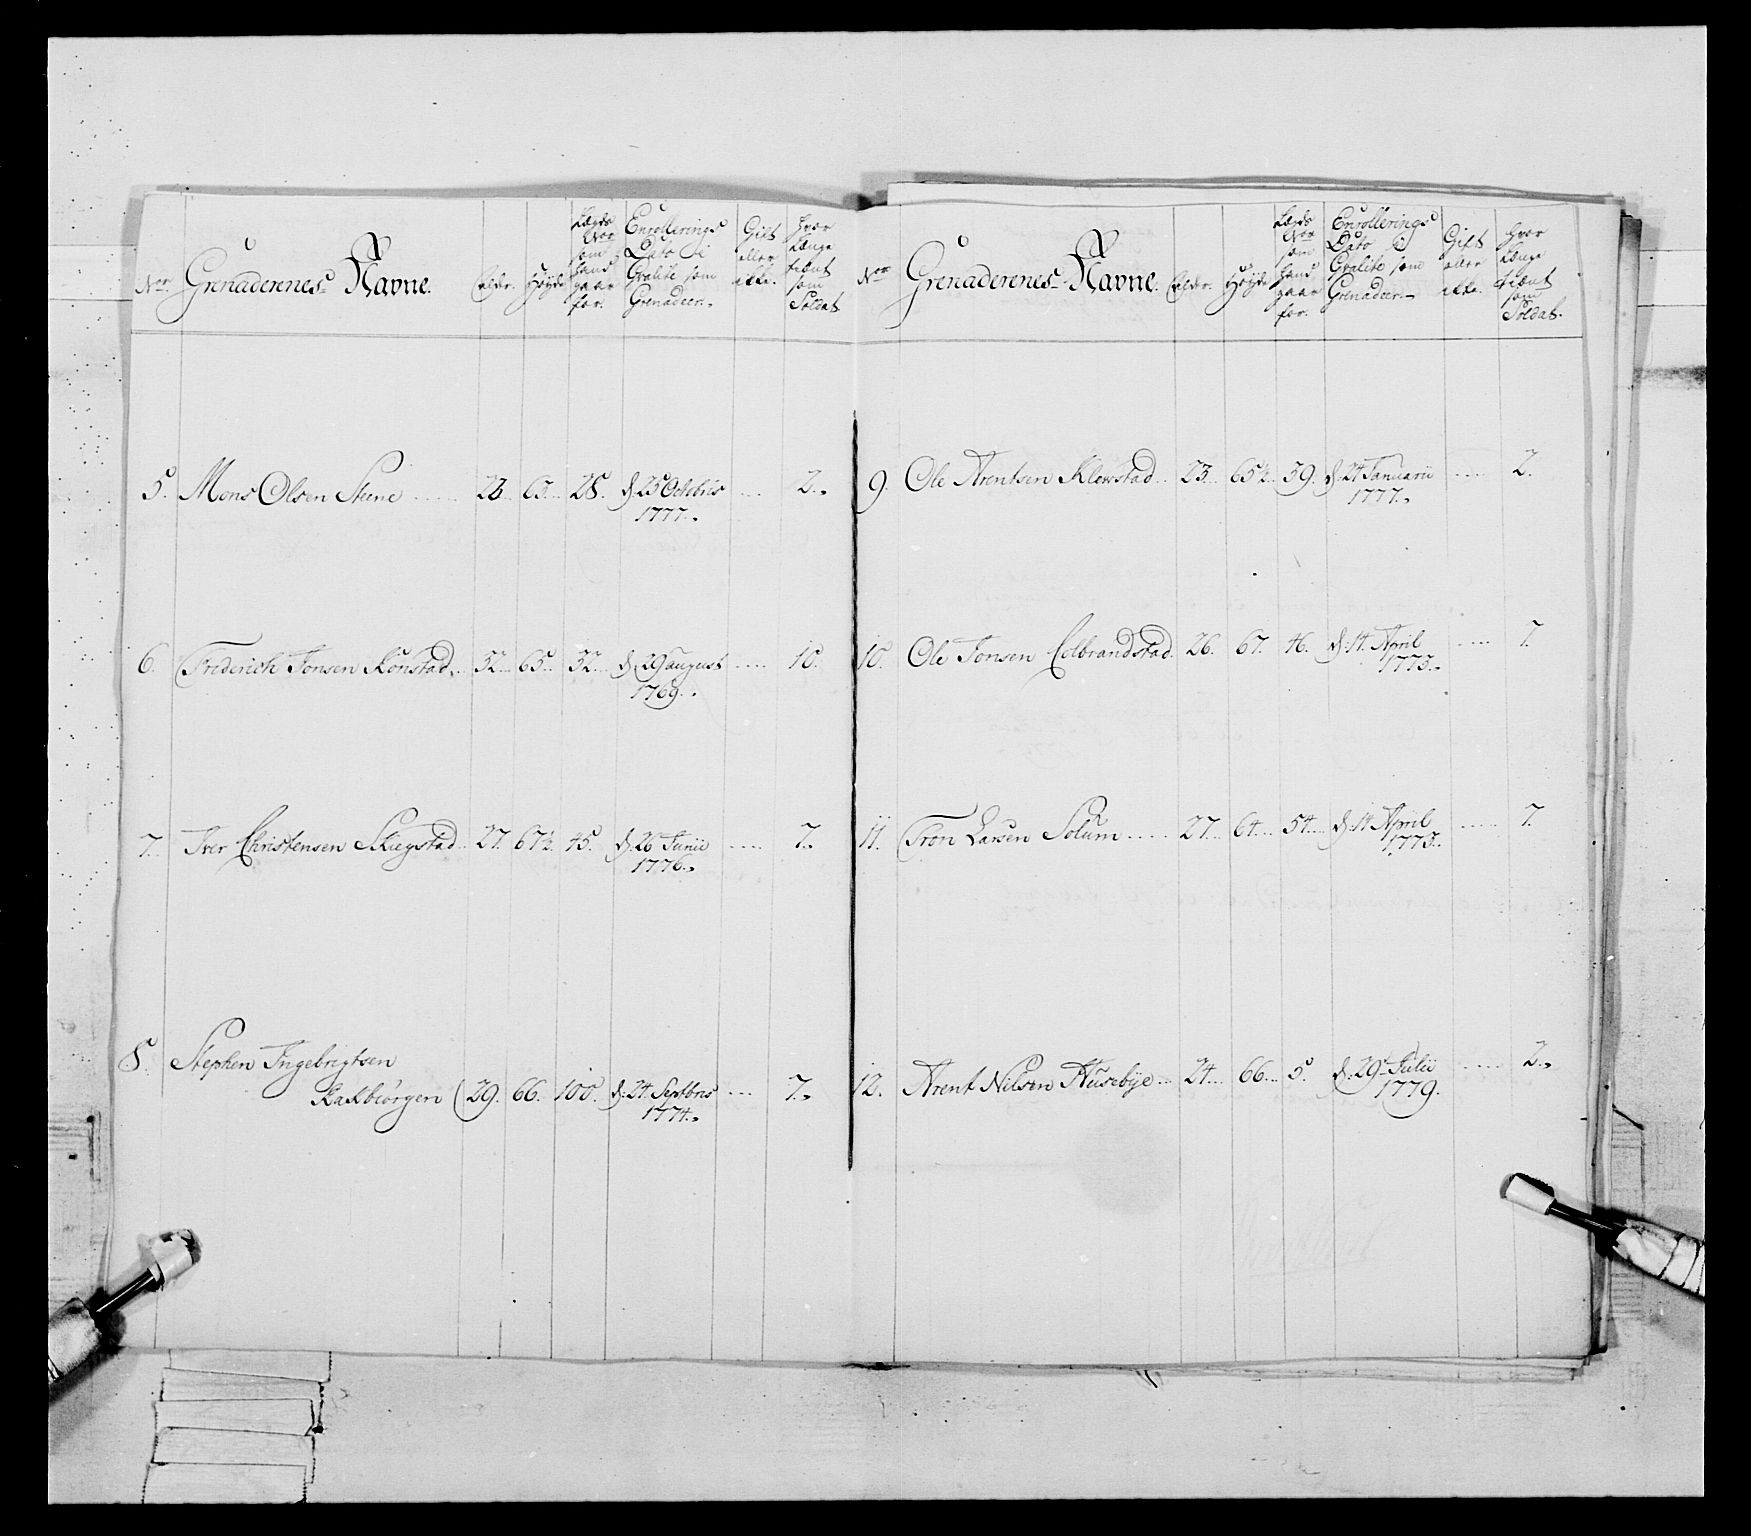 Nor Grenaderenes Navne. Alder. Høyde Lægds Nor som hand gaar for. Enrollerings Dato i Qvalite som Grenadeer. Gift eller ikke. Hvor længe tient som Soldat
5. Mons Olsen Steene 28. 65. 28. d. 25 Octobris 2.
1777.
6. Friderich Jonsen Konstad 32. 65. 32. d. 29 august 10.
1769.
7. Iver Christensen Skiegstad 27. 67½. 45. d. 26 Junii 7.
1776.
8. Stephen Ingebrigtsen
Bakbiørgen 29. 66. 100. d. 24. Septbris 7.
1774.
Nor Grenaderenes Navne. Alder. Høyde Lægds Nor som hand gaar for. Enrollerings Dato i Qvalite som Grenadeer. Gift eller ikke. Hvor længe tient som Soldat.
9. Ole Arentsen Klevstad 23. 65½. 39. d. 24 Januarii 2.
1777.
10. Ole Jonsen Colbrandstad 26. 67. 46. d. 14. April 7.
1773.
11. Tron Larsen Solum 27. 64. 54. d. 14 April 7.
1773.
12. Arent Nilsen Husebye 24. 66. 5. d. 29. Julii 2.
1779.